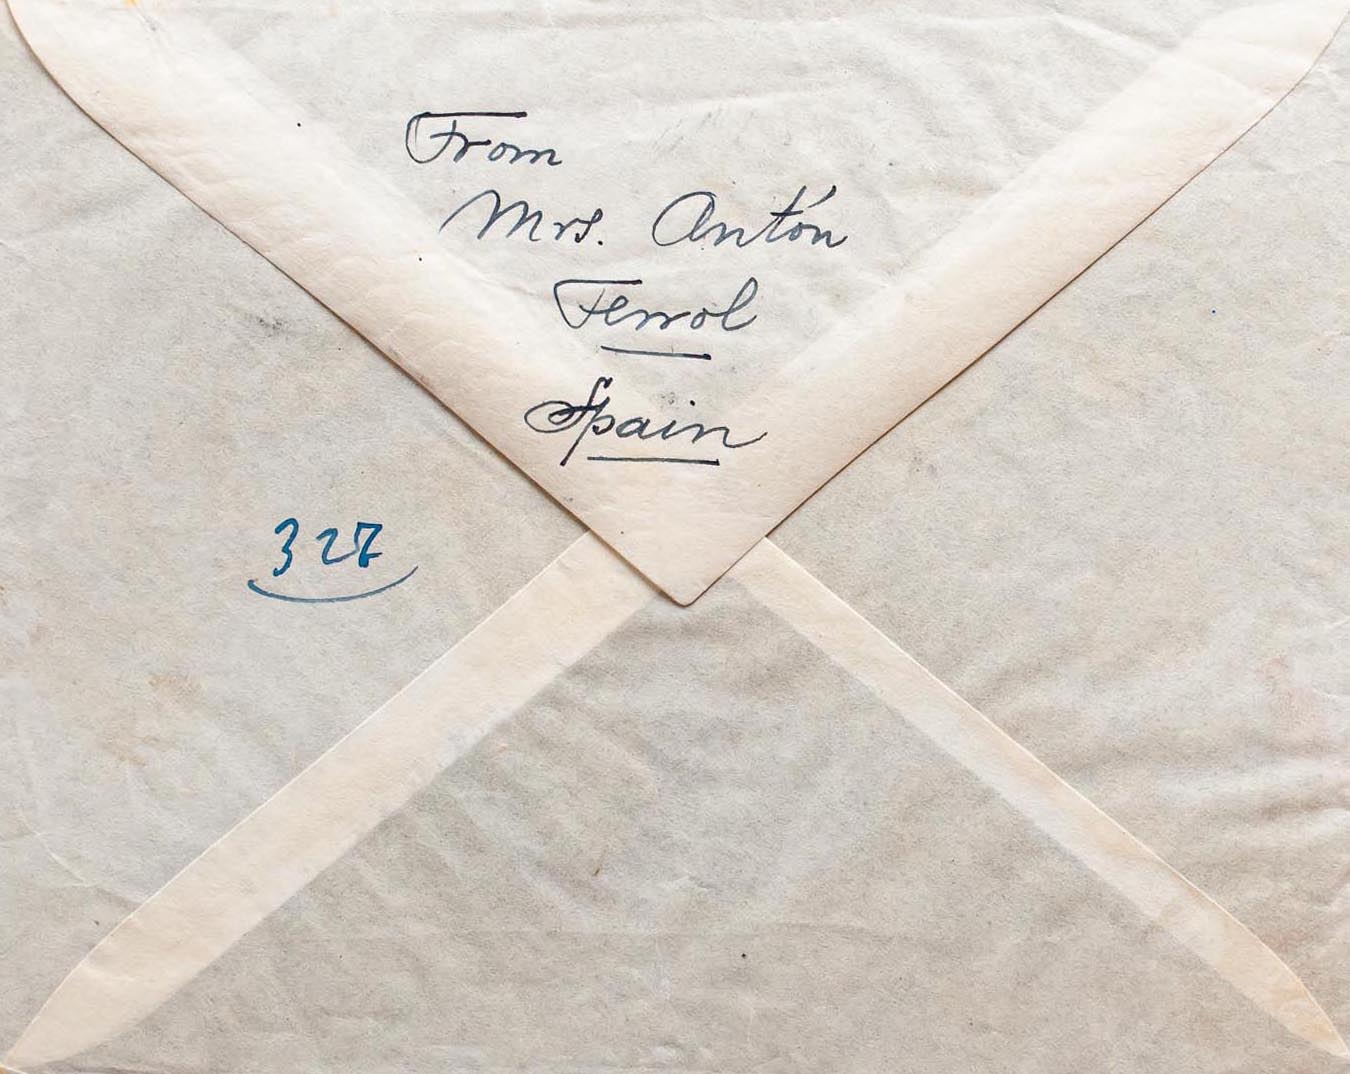 From
Mrs. Antón
Ferrol
Spain
327